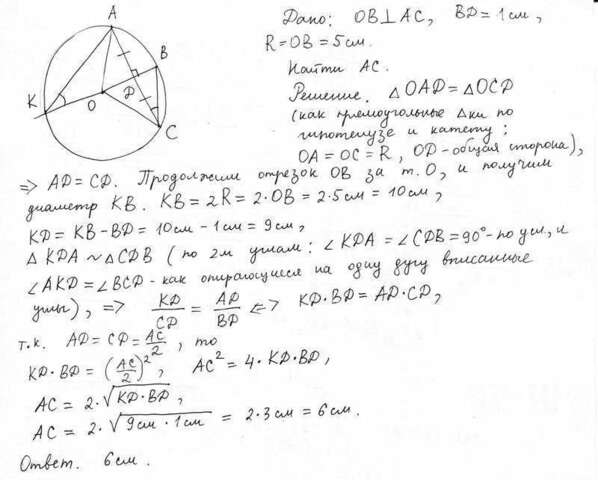 A
B
D
K
O
C
Дано: OB⊥AC, BD=1см,
R=OB=5см.
Найти AC.
Решение. △OAD=△OCD
(как прямоугольные △ки по
гипотенузе и катету;
OA=OC=R, OD-общая сторона),
⇒ AD=CD. Продолжим отрезок OB за т.O, и получим
диаметр KB. KB=2R=2·OB=2·5см=10см,
KD=KB-BD=10см-1см=9см,
△KDA∼△CDB (по 2м углам: ∠KDA=∠CDB=90°-по усл, и
∠AKD=∠BCD-как опирающиеся на одну дугу вписанные
углы), ⇒ KD/CD = AD/BD ⟺ KD·BD=AD·CD,
т.к. AD=CD=AC/2, то
KD·BD=(AC/2)², AC²=4·KD·BD,
AC=2·√KD·BD,
AC=2·√9см·1см = 2·3см=6см.
Ответ. 6см.